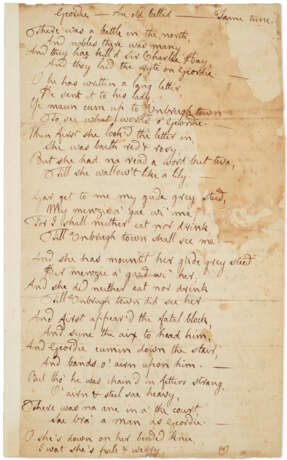 Geordie — An old ballad — Same tune.
There was a battle in the north,
And nobles there was many,
And they hae kill'd Sir Charlie Hay,
And they laid the wyte on Geordie
O he has written a lang letter
He sent it to his lady
Ye maun cum up to Enbrugh town
To see what words o' Geordie.
When first she look'd the letter in,
She was baith red & rosy,
But she had na read a word but twa,
Till she wallow't like a lily
Gar get to me my gude grey steed,
My menzie a' gae wi' me
For I shall neither eat nor drink
Till Enbrugh town shall see me
And she has mountit her gude grey steed
Her menzie a' gaed wi' her
And she did neither eat nor drink
Till Enbrugh town did see her
And first appear'd the fatal block,
And syne the aix to head him,
And Geordie cumin down the stair,
And bands o' airn upon him.
But tho' he was chain'd in fetters strang,
O' airn & steel sae heavy,
There was na ane in a' the court,
Sae bra' a man as Geordie.
O she's down on her bended knee,
I wat she's pale & weary